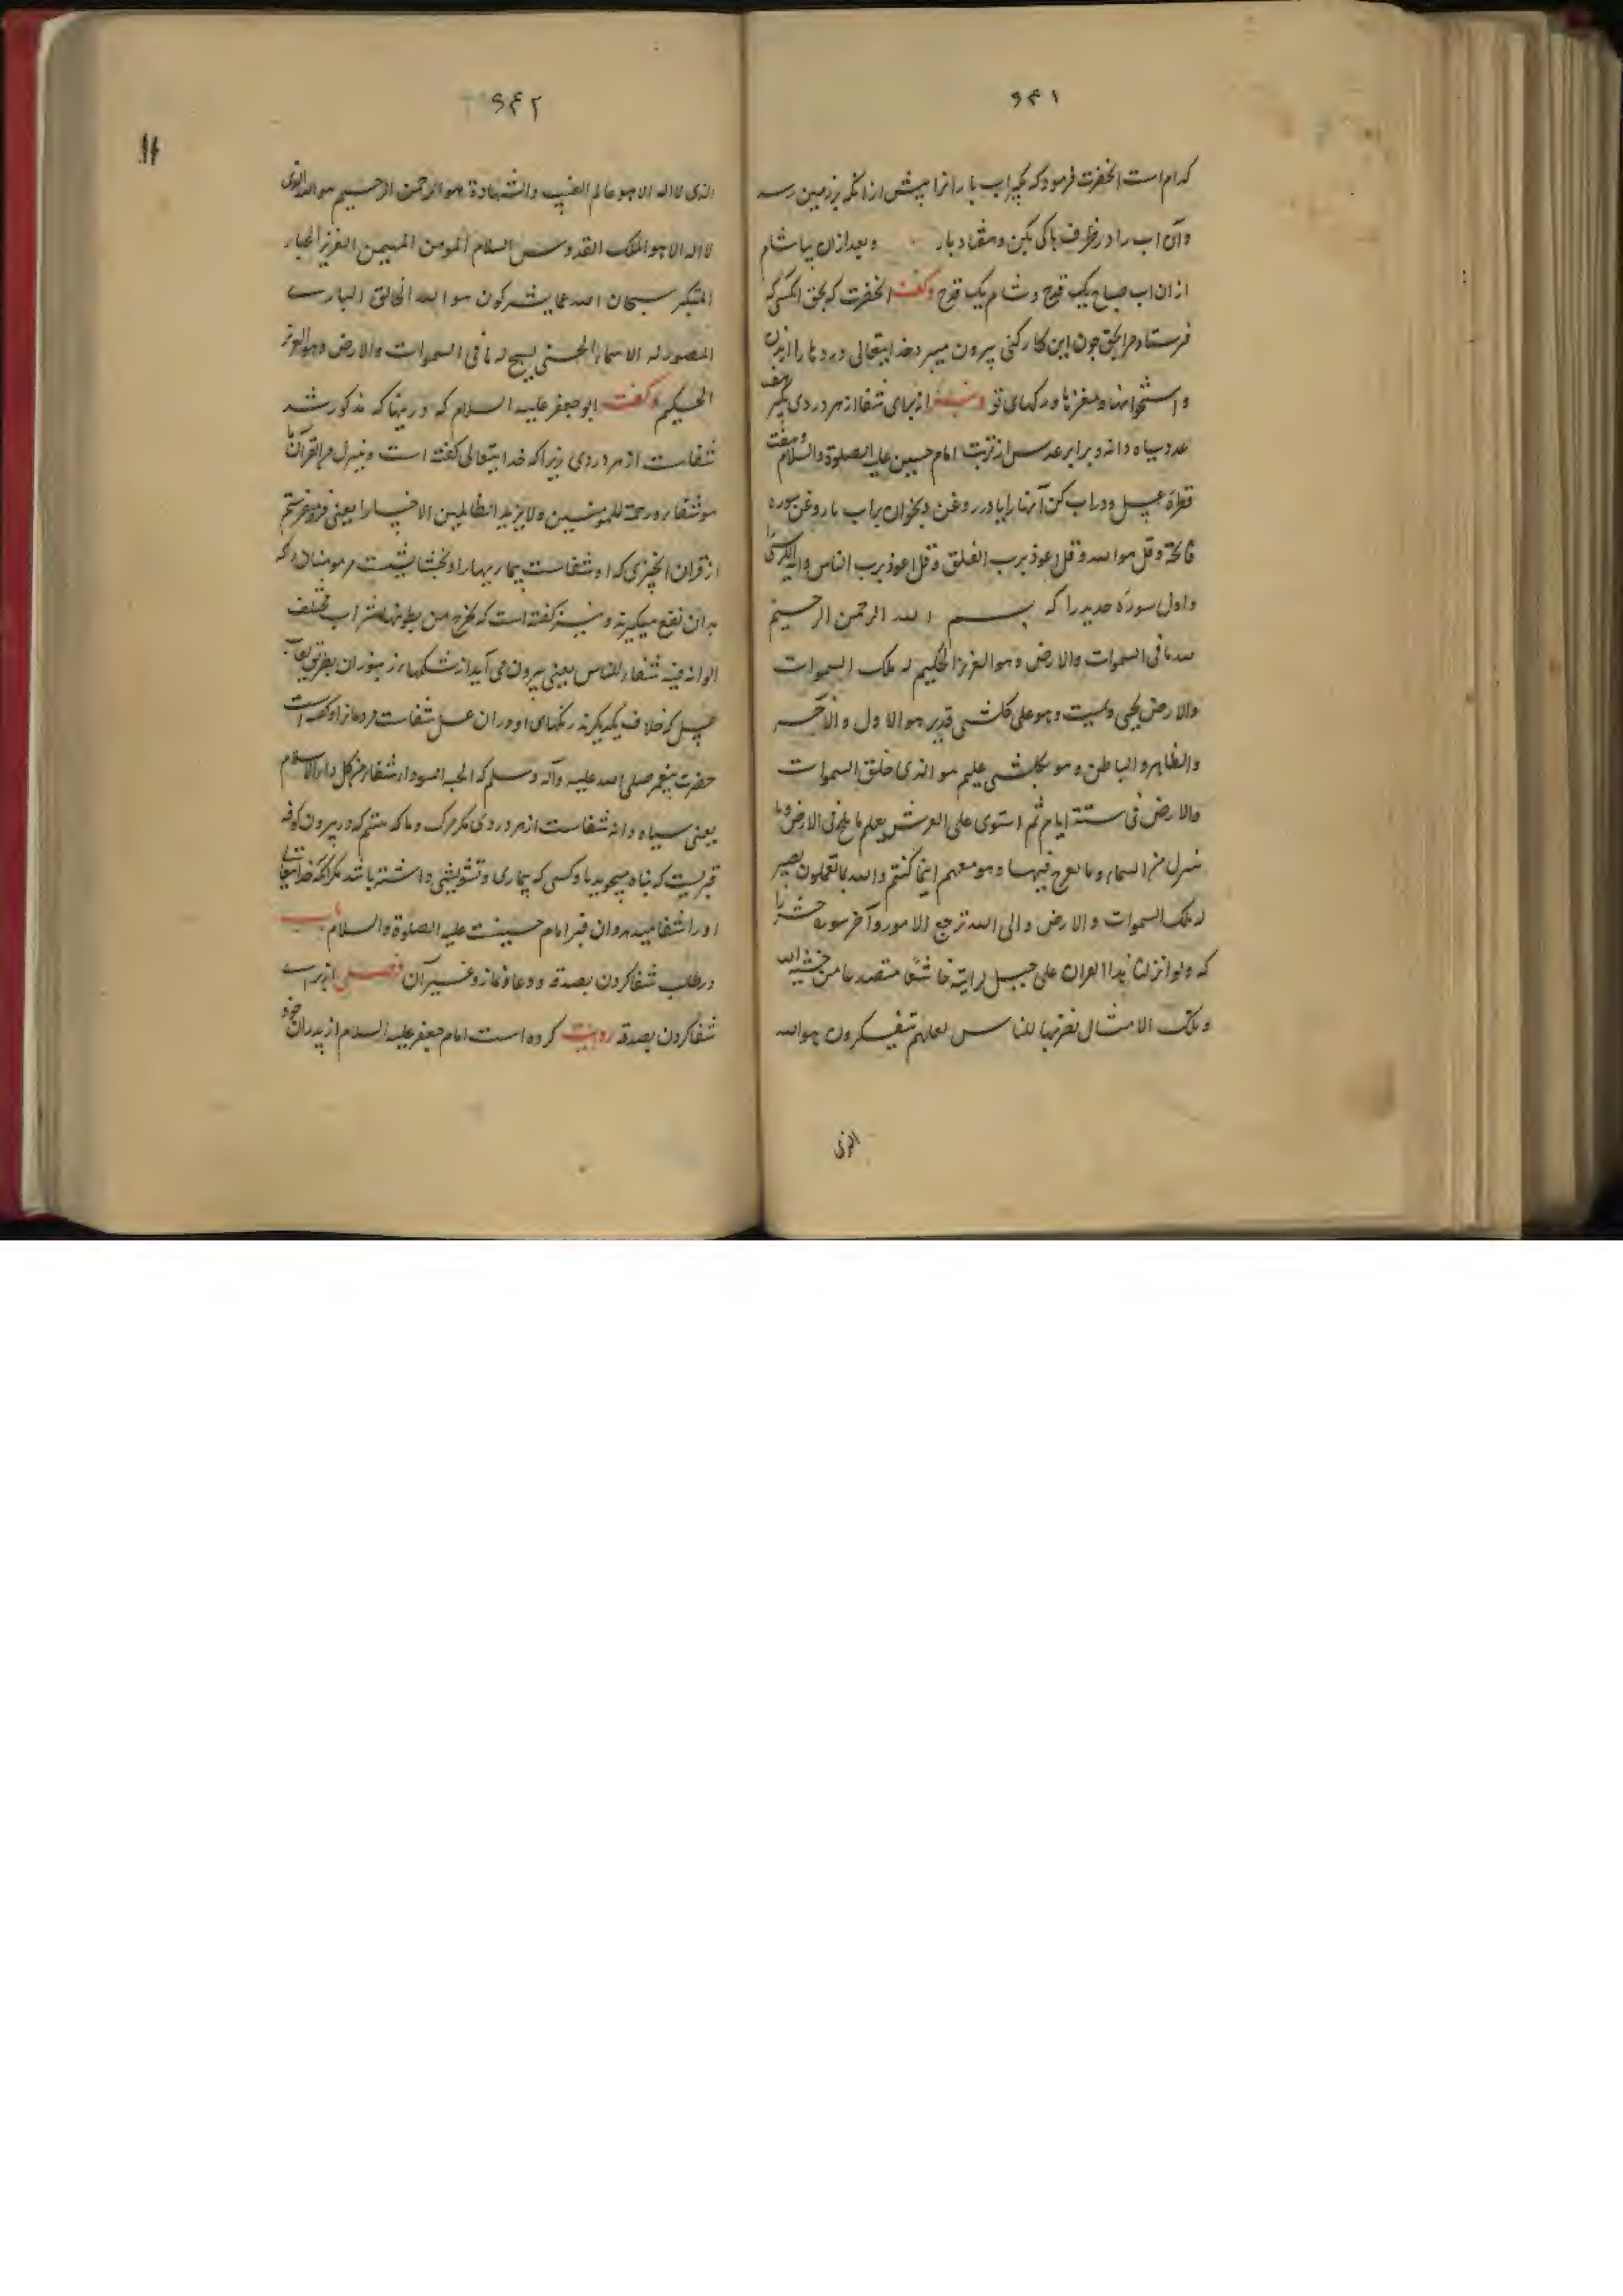 ۶۴۱
کدام است انحضرت فرمود که بگیر اب بارانرا پیش ازانکه بزمین رسد
وآن اب را در ظرف پاکی بکن وهفتاد بار وبعد ازان بیاشام
ازان اب صباح یک قدح وشام یک قدح وگفت انحضرت که بحق انکسی که
فرستاد مرا بحق چون این کار کنی بیرون میبرد خدایتعالی دردها را از بدن
واستخوانها ومغزها ورکهای تو ونیز از برای شفا از هر دردی بگیر هفت
عدد سیاه دانه وبرابر عدس از تربت امام حسین علیه الصلوة والسلام وهفت
قطره عسل ودر اب کن آنها را یا در روغن وبخوان بر اب یا روغن سوره
فاتحة وقل هو الله وقل اعوذ برب الفلق وقل اعوذ برب الناس وایة الکرسی را
واول سوره حدید را که بسم الله الرحمن الرحیم
لله ما فی السموات والارض وهو العزیز الحکیم له ملک السموات
والارض یحیی ویمیت وهو علی کلشی قدیر هو الاول والآخر
والظاهر والباطن وهو بکلشی علیم هو الذی خلق السموات
والارض فی ستة ایام ثم استوی علی العرش یعلم ما یلج فی الارض وما
ینزل من السماء وما یعرج فیها وهو معهم اینما کنتم والله بما تعملون بصیر
له ملک السموات والارض والی الله ترجع الامور وآخر سوره حشر را
که ولو انزلنا هذا القران علی جبل لرایته خاشعًا متصدعا من خشیة الله
وتلک الامثال نضربها للناس لعلهم یتفکرون هو الله
الذی
۶۴۲
الذی لا اله الا هو عالم الغیب والشهادة هو الرحمن الرحیم هو الله الذی
لا اله الا هو الملک القدوس السلام المومن المهیمن العزیز الجبار
المتکبر سبحان الله عما یشرکون هو الله الخالق البارے
المصور له الاسماء الحسنی یسبح له ما فی السموات والارض وهو العزیز
الحکیم وگفت ابو جعفر علیه السلام که درینها که مذکور شد
شفاست از هر دردی زیرا که خدایتعالی گفته است وننزل من القرآن ما
هو شفاء ورحمة للمومنین ولا یزید الظالمین الا خسارا یعنی فرو میفرستم
از قران انچیزی که او شفاست بیماریها را وبخشایشیست مر مومنان را که
بدان نفع میگیرند ونیز گفته است که یخرج من بطونها شراب مختلف
الوانه فیه شفاء للناس یعنی بیرون می آید از شکمهاء زنبوران بطریق لعاب
عسل که خلاف یکدیگرند رنگهای او ودران عسل شفاست مردمانرا وگفته است
حضرت پیغمبر صلی الله علیه وآله وسلم که الحبة السوداء شفاء من کل داء الا السام
یعنی سیاه دانه شفاست از هر دردی مگر مرگ وما که هستیم که در بیرون کوفه
قبریست که پناه میجوید با وکسی که بیماری وتشویشی داشته باشد مگر انکه خدایتعالی
اورا شفا میدهد وان قبر امام حسینست علیه الصلوة والسلام باب
در طلب شفا کردن بصدقه ودعا ونماز وغیر آن فصل از براے
شفا کردن بصدقه روایت کرده است امام جعفر علیه السلام از پدران خود